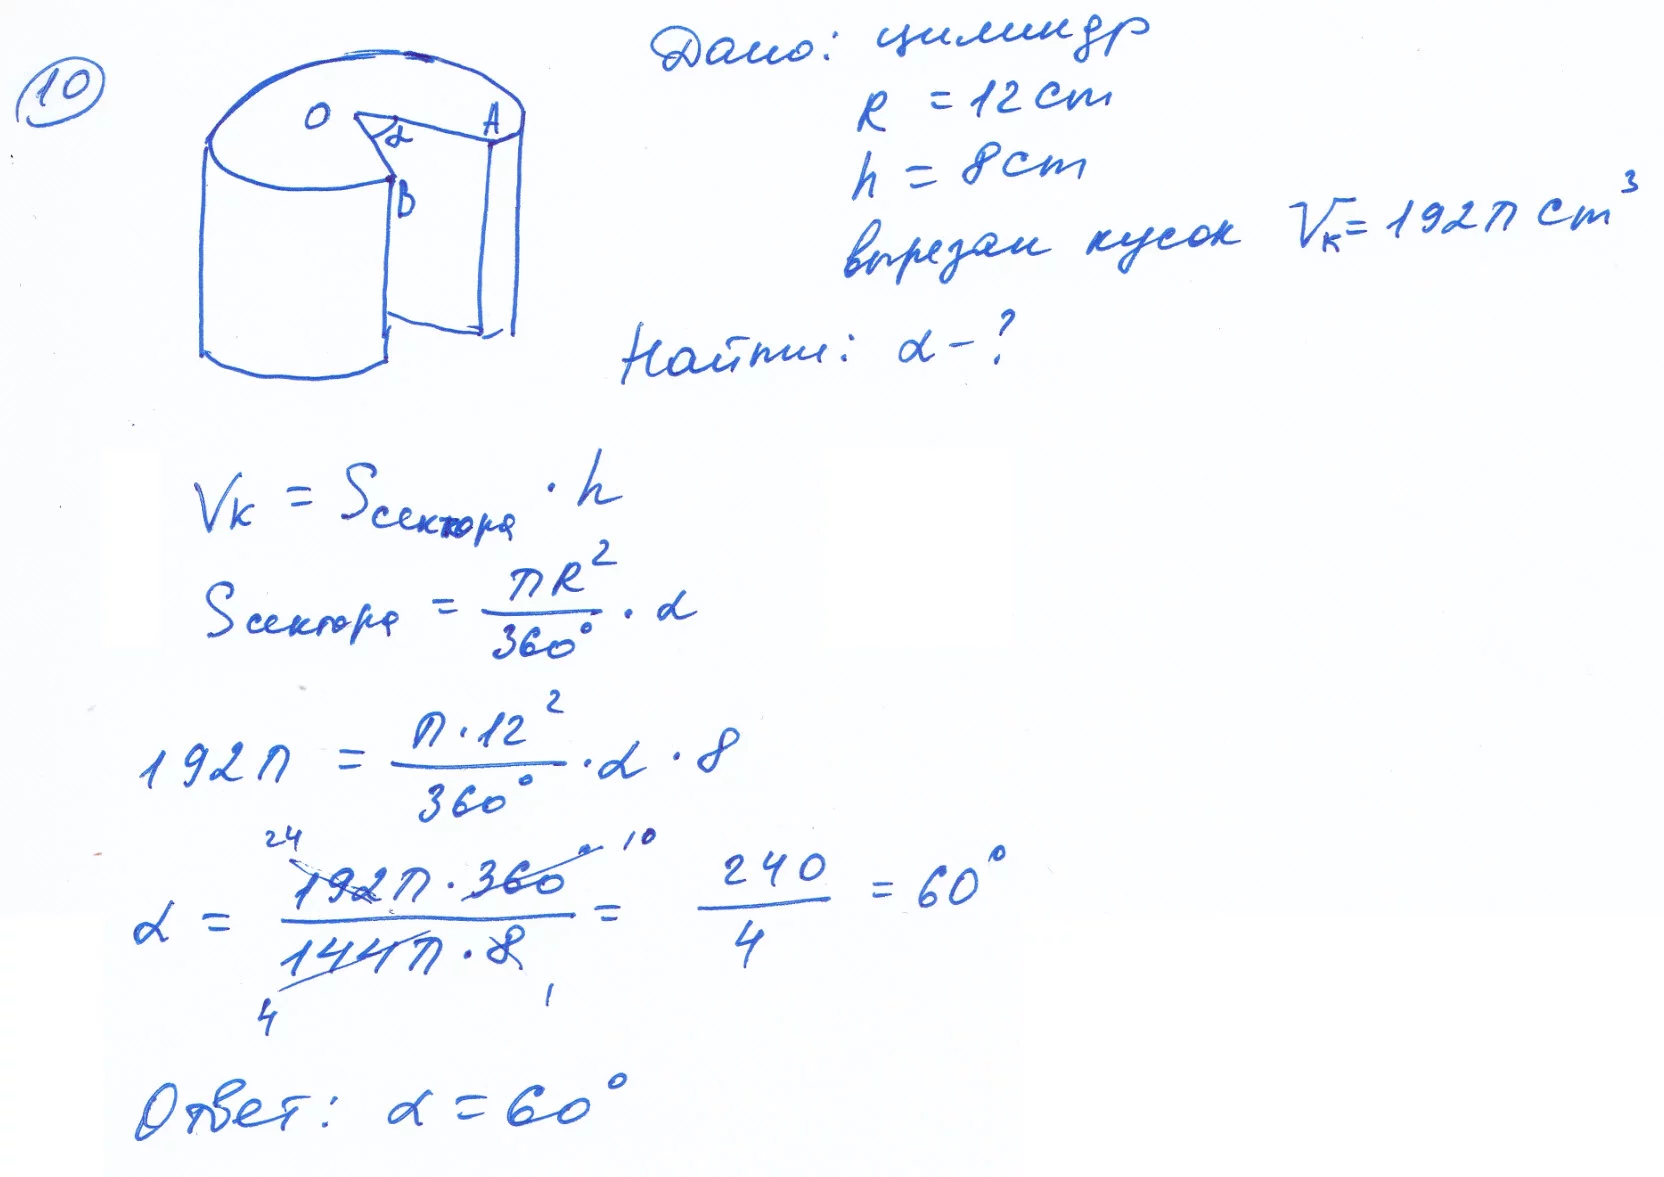 10
Дано: цилиндр
R = 12 cm
h = 8 cm
вырезан кусок Vк = 192π cm³
Найти: α - ?
O α A
B
Vк = Sсектора · h
Sсектора = πR² / 360° · α
192π = π · 12² / 360° · α · 8
24 10
α = 192π · 360 / 144π · 8 = 240 / 4 = 60°
4 1
Ответ: α = 60°